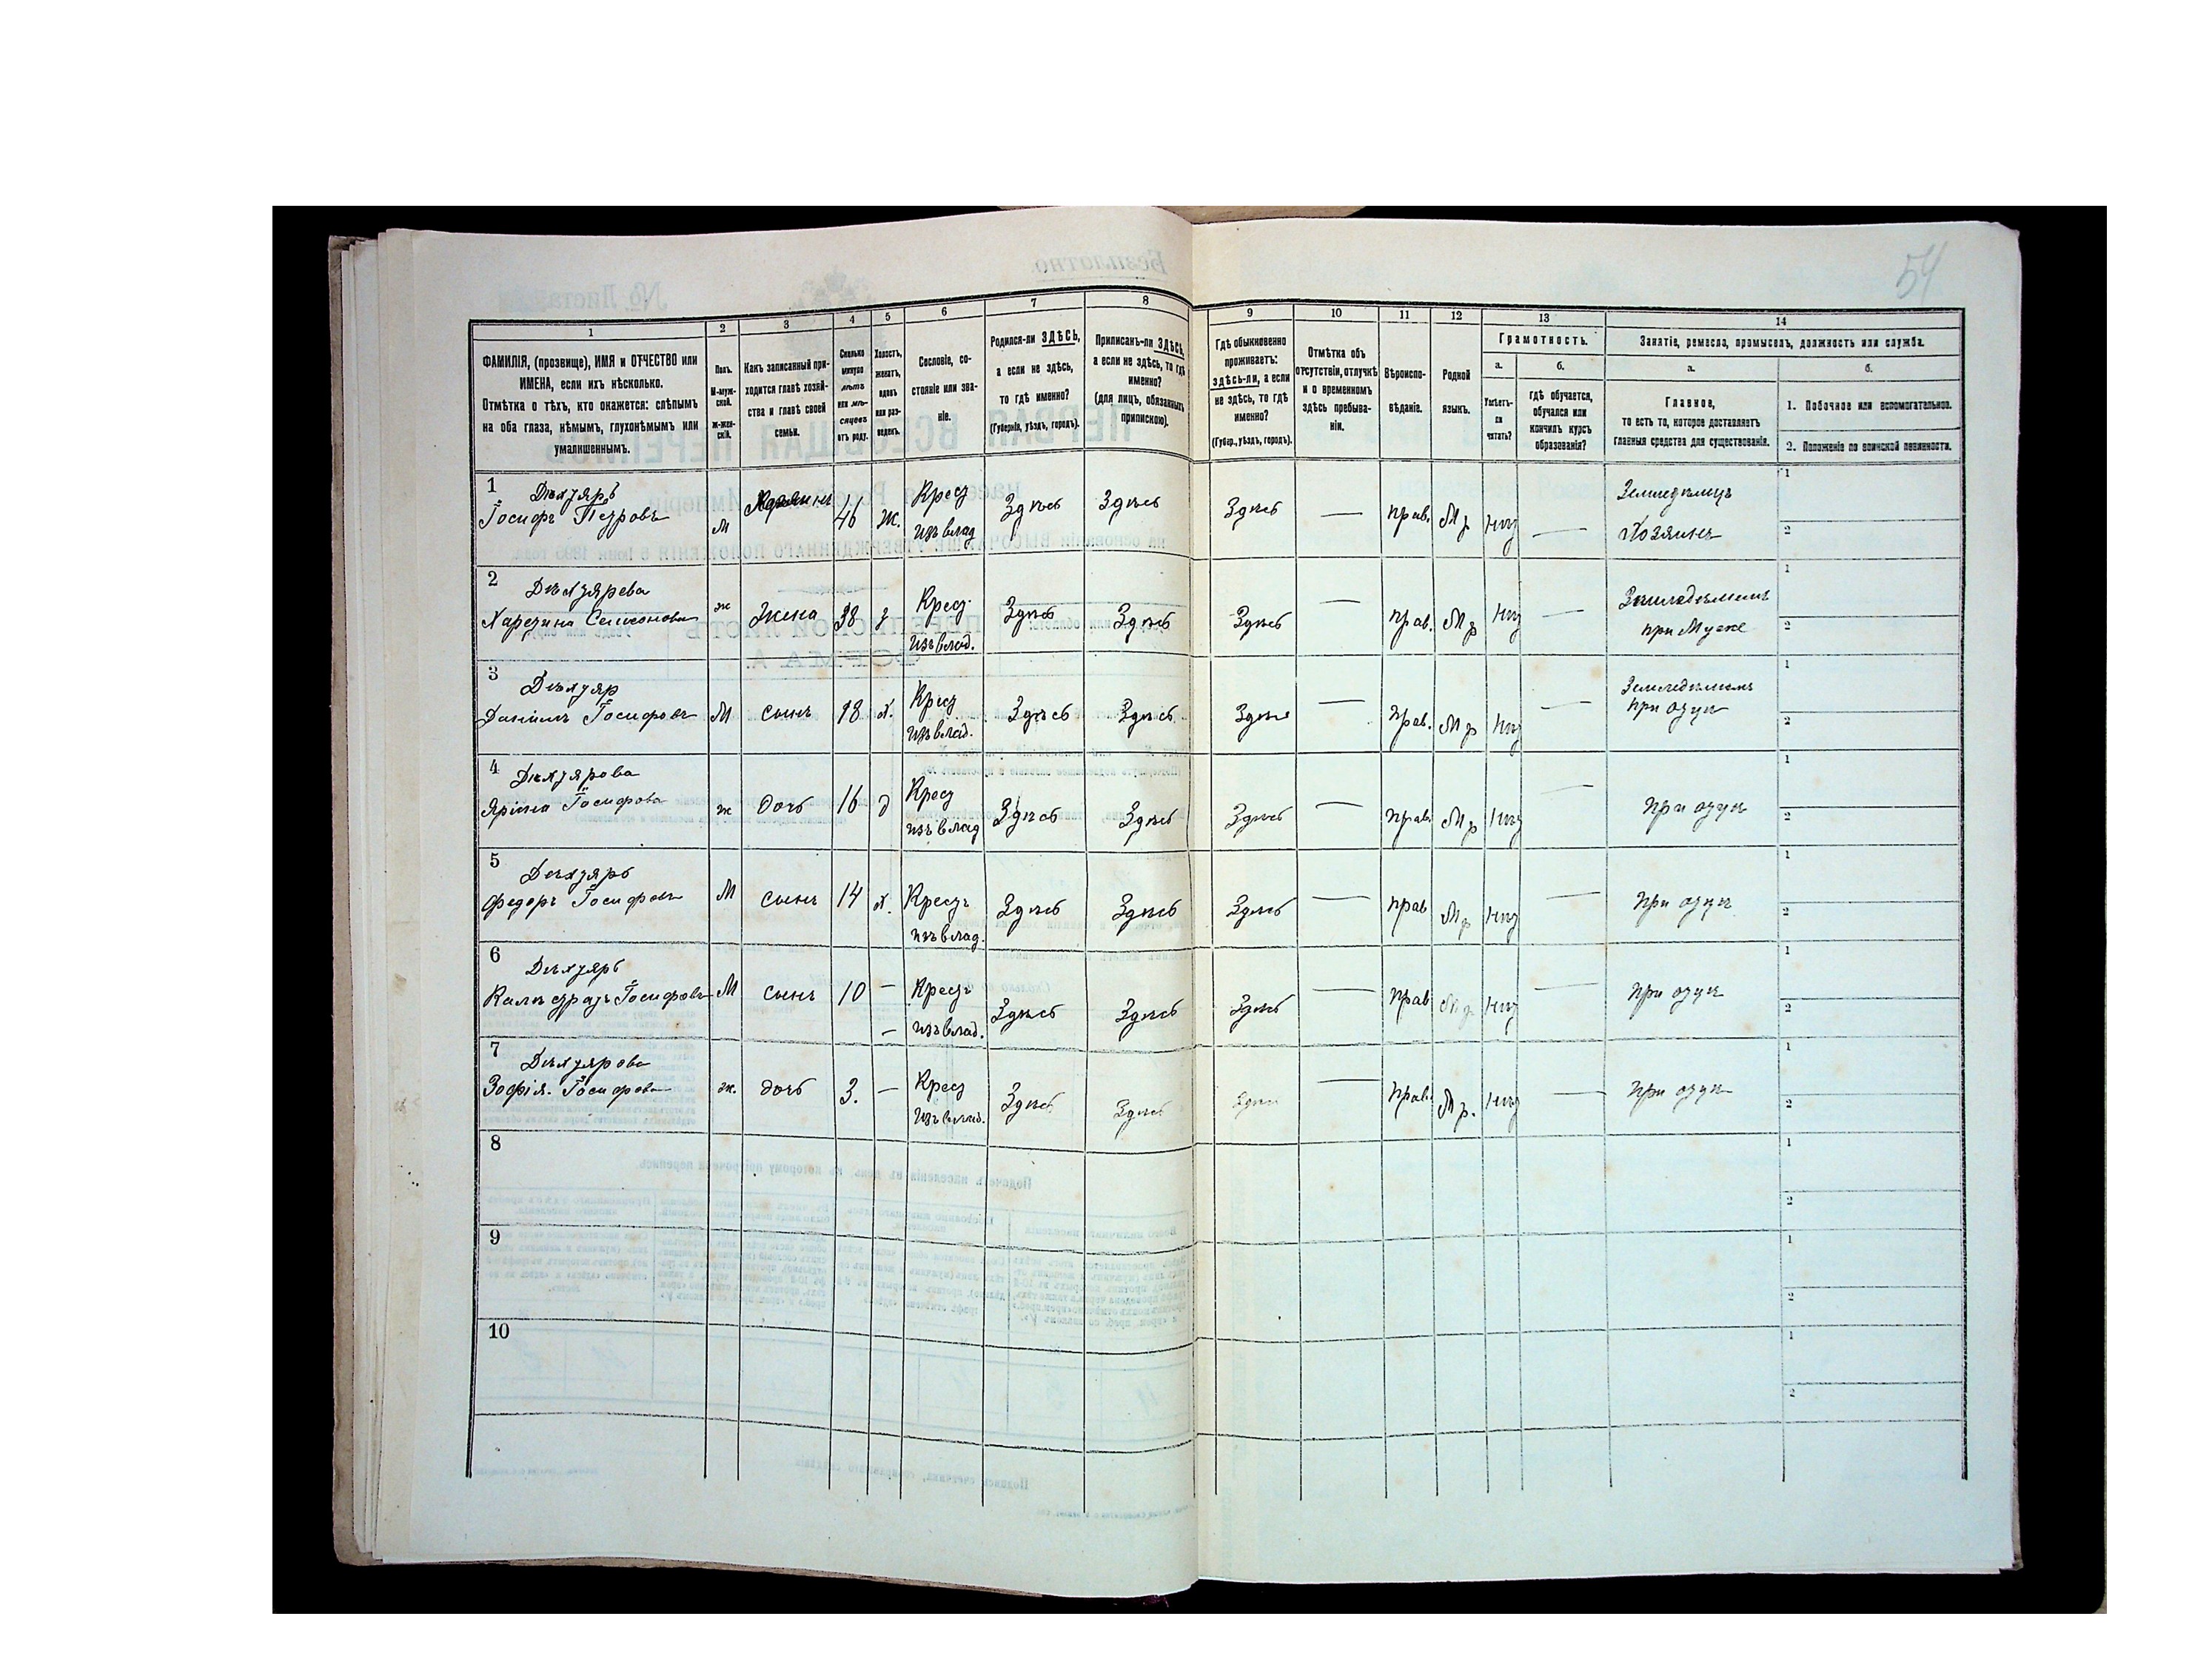 54
1
2
3
4
5
6
7
8
9
10
11
12
13
14
ФАМИЛІЯ, (прозвище), ИМЯ и ОТЧЕСТВО или
ИМЕНА, если ихъ нѣсколько.
Отмѣтка о тѣхъ, кто окажется: слѣпымъ
на оба глаза, нѣмымъ, глухонѣмымъ или
умалишеннымъ.
Полъ.
М-муж-
ской.
ж-жен-
скій.
Какъ записанный при-
ходится главѣ хозяй-
ства и главѣ своей
семьи.
Сколько
минуло
лѣтъ
или мѣ-
сяцевъ
отъ роду.
Холостъ,
женатъ,
вдовъ
или раз-
веденъ.
Сословіе, со-
стояніе или зва-
ніе.
Родился-ли ЗДѢСЬ,
а если не здѣсь,
то гдѣ именно?
(Губернія, уѣздъ, городъ).
Приписанъ-ли ЗДѢСЬ,
а если не здѣсь, то гдѣ
именно?
(для лицъ, обязанныхъ
припискою).
Гдѣ обыкновенно
проживаетъ:
здѣсь-ли, а если
не здѣсь, то гдѣ
именно?
(Губер., уѣздъ, городъ).
Отмѣтка объ
отсутствіи, отлучкѣ
и о временномъ
здѣсь пребыва-
ніи.
Вѣроиспо-
вѣданіе.
Родной
языкъ.
Грамотность.
а.
Умѣетъ-
ли
читать?
б.
гдѣ обучается,
обучался или
кончилъ курсъ
образованія?
Занятіе, ремесло, промыселъ, должность или служба.
а.
Главное,
то есть то, которое доставляетъ
главныя средства для существованія.
б.
1. Побочное или вспомогательное.
2. Положеніе по воинской повинности.
1 Дѣхтярь
Іосифъ Петровъ
М
46
ж.
Крест
изъ влад
Здѣсь
Здѣсь
Здѣсь
—
прав.
Мр
нѣт
—
Земледѣлецъ
Хозяинъ
1
2
2 Дѣхтярева
Харетина Семенова
ж
Жена
38
з
Крест.
изъ влад.
Здѣсь
Здѣсь
Здѣсь
—
прав.
Мр
нѣт
—
Земледѣлиемъ
при Муже
1
2
3 Дѣхтяр
Даніилъ Іосифовъ
М
сынъ
18
х.
Крест
изъ влад.
Здѣсь
Здѣсь
Здѣсь
—
прав.
Мр
нѣт
—
Земледѣлиемъ
при отцѣ
1
2
4 Дѣхтярова
Яріна Іосифова
ж
дочь
16
д
Крест
изъ влад
Здѣсь
Здѣсь
Здѣсь
—
прав.
Мр
нѣт
—
при отцѣ
1
2
5 Дѣхтярь
Федоръ Іосифовъ
М
сынъ
14
х.
Крестъ
изъ влад.
Здѣсь
Здѣсь
Здѣсь
—
прав
Мр
нѣт
—
при отцѣ
1
2
6 Дѣхтярь
Калистратъ Іосифовъ
М
сынъ
10
—
Крестъ
изъ влад.
Здѣсь
Здѣсь
Здѣсь
—
прав
Мр
нѣт
—
при отцѣ
1
2
7 Дѣхтярова
Зофія. Іосифова
ж.
дочь
3.
—
Крест
изъ влад.
Здѣсь
Здѣсь
Здѣсь
—
прав.
Мр.
нѣт
—
при отцѣ
1
2
8
1
2
9
1
2
10
1
2